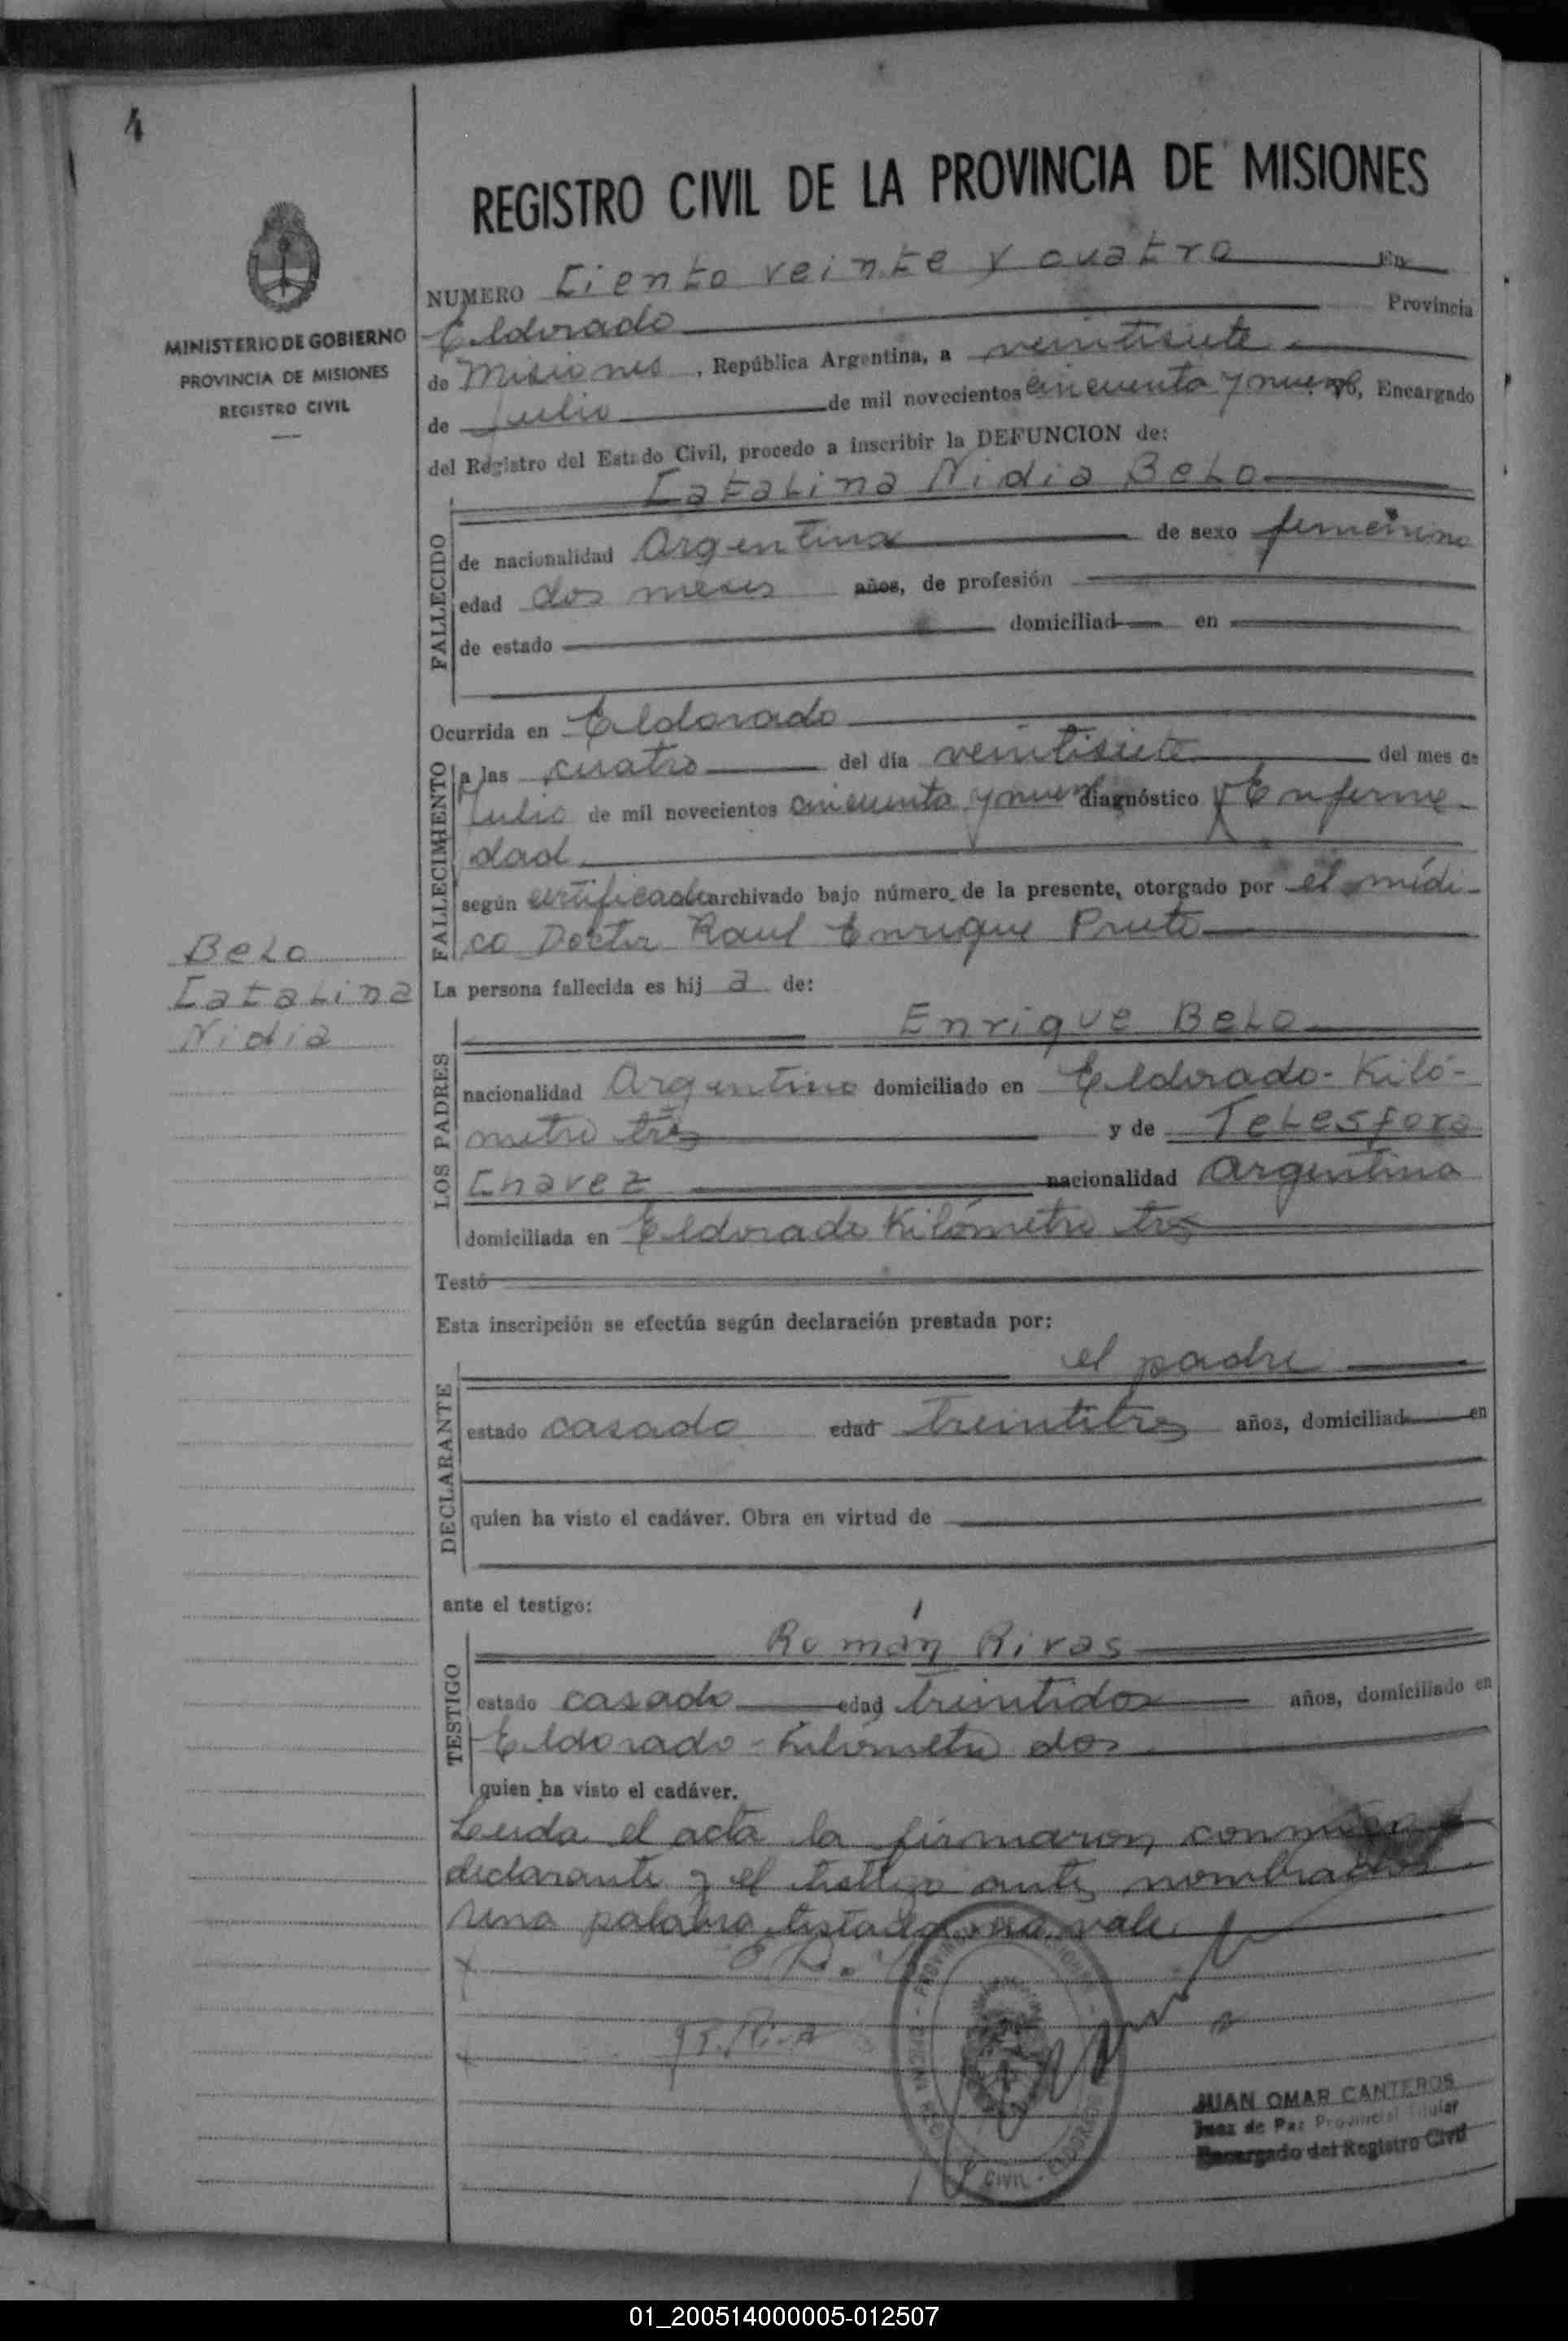 4
REGISTRO CIVIL DE LA PROVINCIA DE MISIONES
MINISTERIO DE GOBIERNO
PROVINCIA DE MISIONES
REGISTRO CIVIL
NUMERO Ciento veinte y cuatro En
Eldorado Provincia
de Misiones, República Argentina, a veintisiete
de Julio de mil novecientos cincuenta y nueve, Encargado
del Registro del Estado Civil, procedo a inscribir la DEFUNCION de:
Catalina Nidia Belo
FALLECIDO
de nacionalidad Argentina de sexo femenino
edad dos meses años, de profesión
de estado domiciliad en
Ocurrida en Eldorado
FALLECIMIENTO
a las cuatro del día veintisiete del mes de
Julio de mil novecientos cincuenta y nueve diagnóstico Enferme-
dad
según certificado archivado bajo número de la presente, otorgado por el médi-
co Doctor Raul Enrique Prieto
Belo
Catalina
Nidia
La persona fallecida es hija de:
LOS PADRES
Enrique Belo
nacionalidad Argentino domiciliado en Eldorado - Kiló-
metro tres y de Telesfora
Chavez nacionalidad argentina
domiciliada en Eldorado Kilómetro tres
Testó
Esta inscripción se efectúa según declaración prestada por:
DECLARANTE
el padre
estado casado edad treintitres años, domiciliad en
quien ha visto el cadáver. Obra en virtud de
ante el testigo:
TESTIGO
Román Rivas
estado casado edad treintidos años, domiciliado en
Eldorado - kilómetro dos
quien ha visto el cadáver.
Leida el acta la firmaron, conmigo el
declarante y el testigo antes nombrados
una palabra testada no vale.
CIVIL - ELDORADO
JUAN OMAR CANTEROS
Juez de Paz Provincial Titular
Encargado del Registro Civil
01_200514000005-012507